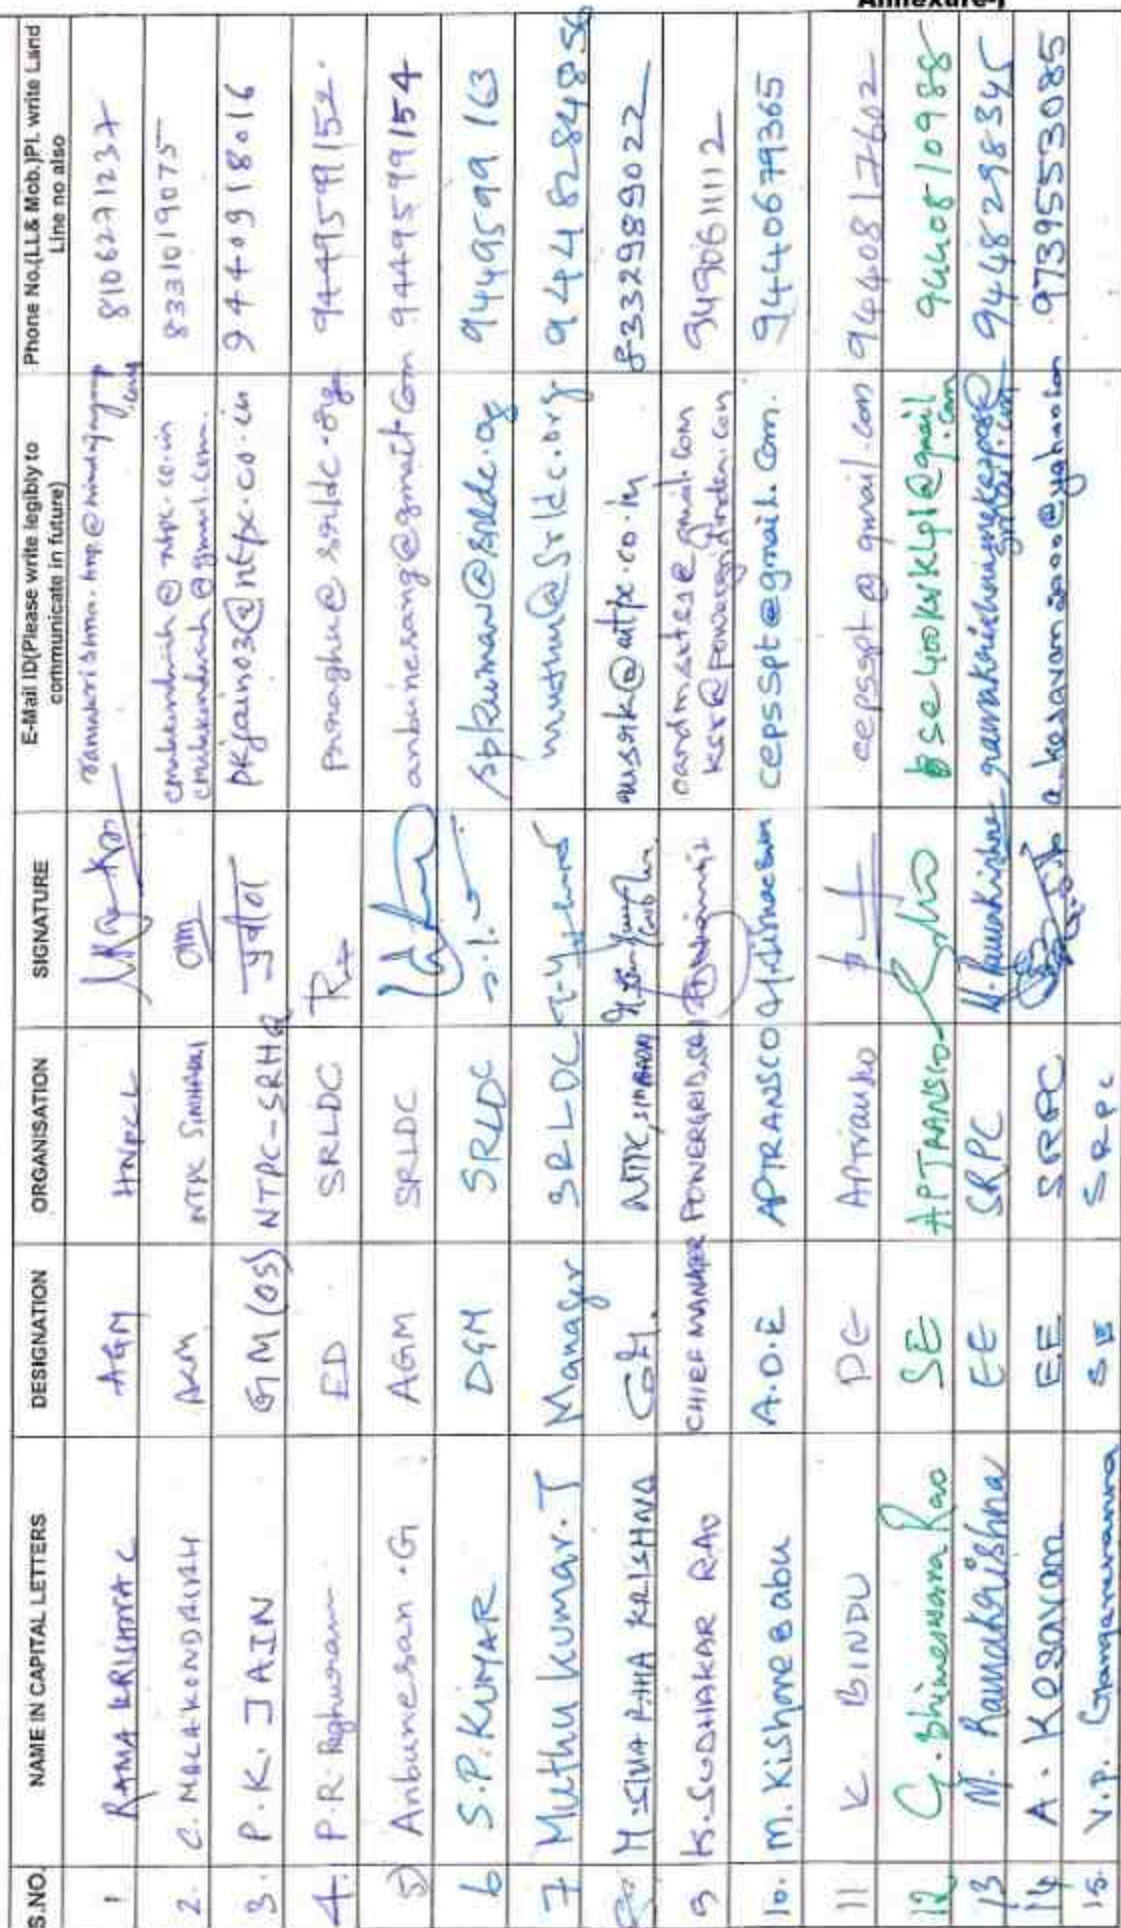 Annexure-I
S.NO. NAME IN CAPITAL LETTERS DESIGNATION ORGANISATION SIGNATURE E-Mail ID(Please write legibly to communicate in future) Phone No.(LL& Mob.)Pl. write Land Line no also
1 RAMA KRISHNA C AGM HNPCL 8106271237
2. C. MALAKONDAIAH AGM NTPC SIMHADRI cmalakondaiah@ntpc.co.in 8331019075
cmalakondaiah@gmail.com.
3. P.K. JAIN GM (OS) NTPC-SRHQ pkjain03@ntpc.co.in 9440918016
4. P.R. Raghuram ED SRLDC prraghu@srldc.org 9449599152
5) Anbunesan.G AGM SRLDC anbunesang@gmail.com 9449599154
6 S.P. KUMAR DGM SRLDC spkumar@srldc.org 9449599163
7 Muthu kumar.T Manager SRLDC muthu@srldc.org 9448284856
8. M.SIVA RAMA KRISHNA GM. NTPC, SIMHADRI 8332989022
9 K.SUDHAKAR RAO CHIEF MANAGER POWERGRID, 9490611112
10. M. Kishore Babu A.D.E APTRANSCO cepsspt@gmail.com. 9440679365
11 K. BINDU DE APTransco cepsspt@gmail.com 9440817602
12 G. Bhimeswara Rao SE APTRANSCO se400kvklpl@gmail.com 9440810988
13 M. Ramakrishna EE SRPC M. Ramakrishna 9448298345
14 A. Kesavan EE SRPC a_kesavan2000@yahoo.com 9739553085
15. V.P. SE SRPC